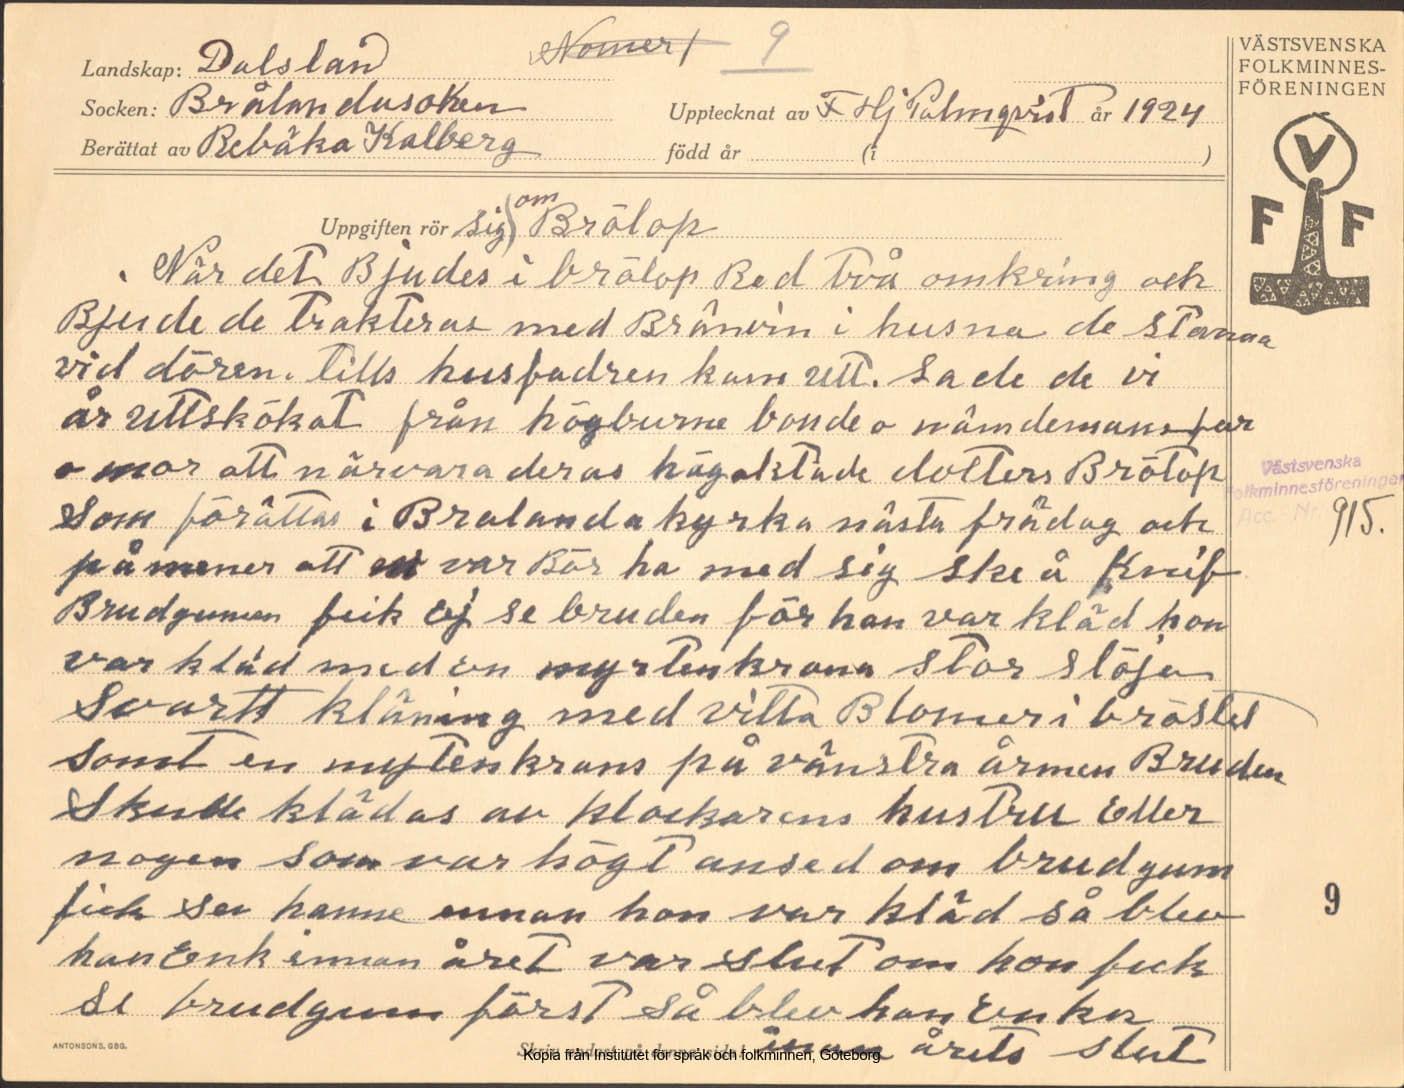 Nomer 1 9
Landskap: Dalsland
Socken: Brålandasoken
Upptecknat av F Hj Palmqvist år 1924
Berättat av Rebäka Kalberg
född år (i )
VÄSTSVENSKA
FOLKMINNES-
FÖRENINGEN
V
F F
Uppgiften rör sig om Brölop
När det Bjudes i brölop Red två omkring och
Bjude de trakteras med Bränvin i husna de stanna
vid dören. tills husfadren kam utt. Sade de vi
är uttskökat från högburne bonde o nämdemans far
o mor att närvara deras högaktade dotters Brölop
Som förättas i Bralanda kyrka nästa frädag och
påmener att var Bör ha med sig ske å Knif
Brudgumen feik Ej se bruden för han var kläd hon
var kläd med en myrtenkrona stor slöja
Svartt kläning med vitta Blomer i bröstet
samt en mytenkrans på vänstra ärmen Bruden
Skulle klädas av klockarens hustru Eller
nogen som var högt ansed om brudgum
fick se hanne ennan hon var kläd så blev
han Enk innan året var slut om hon fick
se brudgum först så blev hon Enka
innan årets slut
Västsvenska
Folkminnesföreningen
Acc. Nr. 915.
9
ANTONSONS, GBG.
Kopia från Institutet för språk och folkminnen, Göteborg